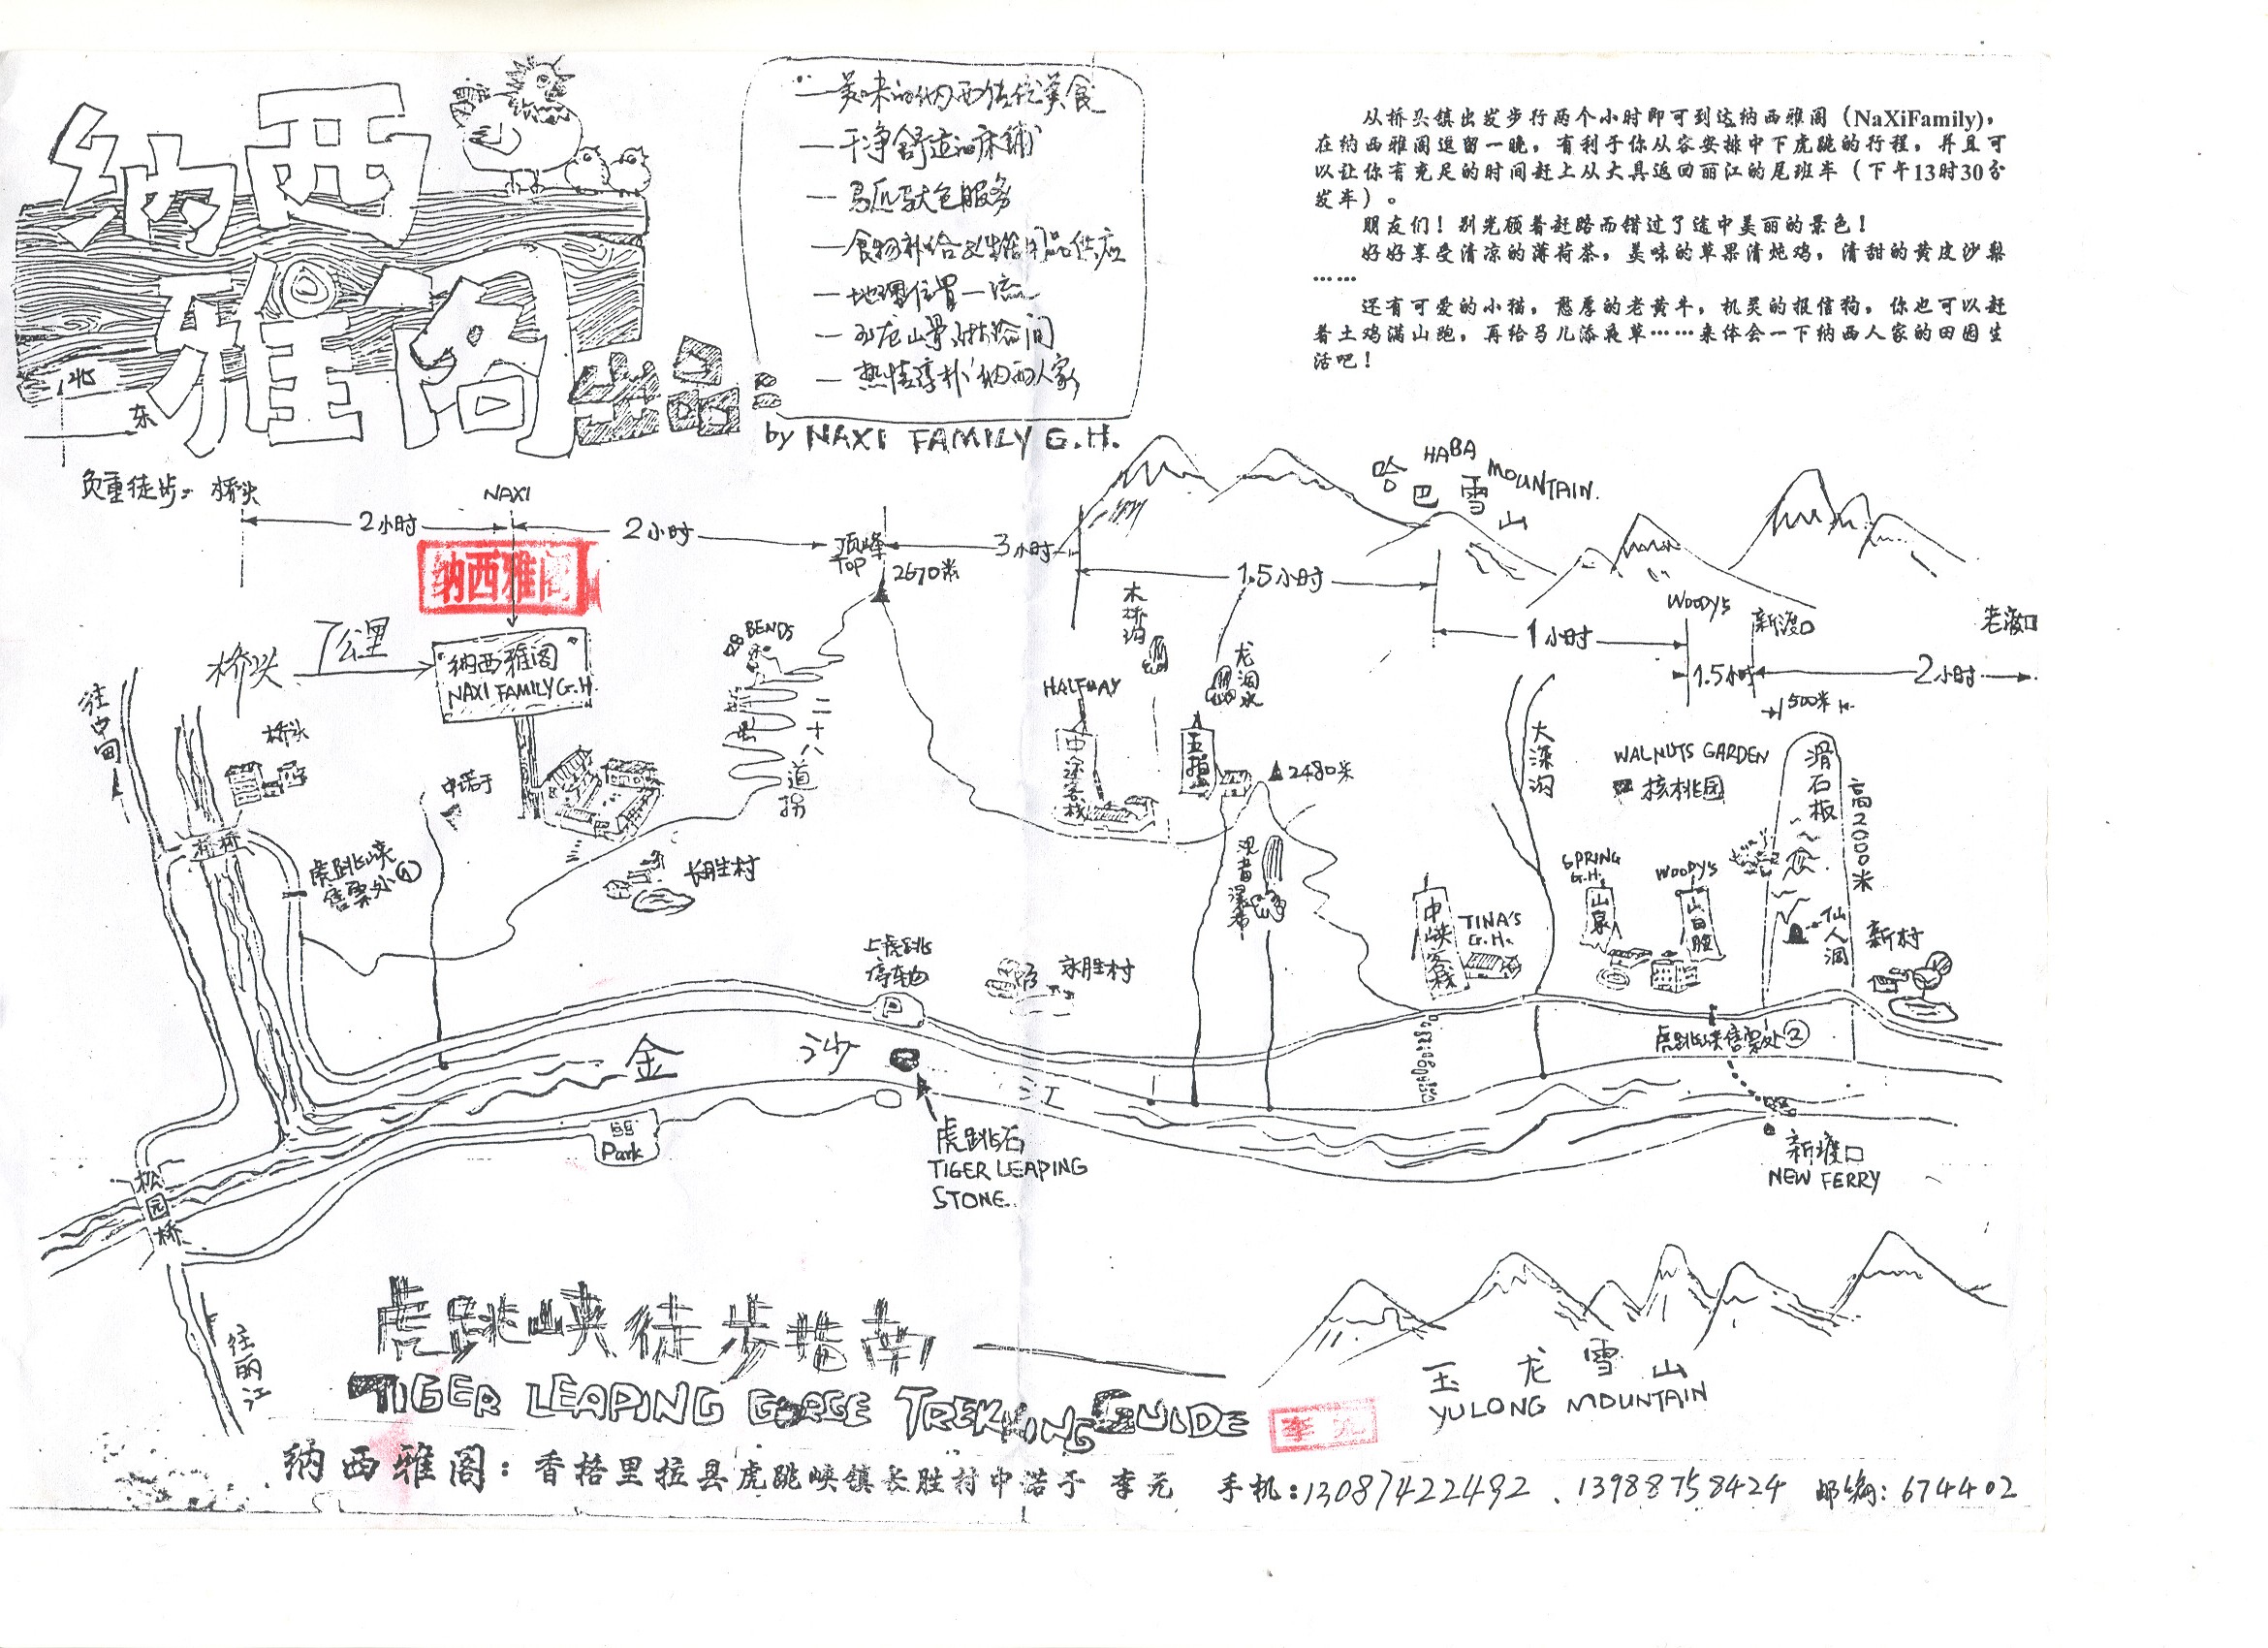 纳西
雅阁
出品
北
东
—美味的纳西传统美食
—干净舒适的床铺
—马匹驮包服务
—食物补给及生活用品供应
—地理位置一流
—玉龙山景
—热情淳朴的纳西人家
by NAXI FAMILY G.H.
从桥头镇出发步行两个小时即可到达纳西雅阁（NaXiFamily)，
在纳西雅阁逗留一晚，有利于你从容安排中下虎跳的行程，并且可
以让你有充足的时间赶上从大具返回丽江的尾班车（下午13时30分
发车）。
朋友们！别光顾着赶路而错过了途中美丽的景色！
好好享受清凉的薄荷茶，美味的草果清炖鸡，清甜的黄皮沙梨
……
还有可爱的小猫，憨厚的老黄牛，机灵的报信狗，你也可以赶
着土鸡满山跑，再给马儿添夜草……来体会一下纳西人家的田园生
活吧！
负重徒步： 桥头
2小时
NAXI
2小时
顶峰
TOP
2670米
3小时
1.5小时
1小时
WOODYS
1.5小时
新渡口
500米
2小时
老渡口
哈巴雪山
HABA MOUNTAIN
纳西雅阁
桥头 7公里
纳西雅阁
NAXI FAMILY G.H.
往中甸
桥头
桥
虎跳峡
售票处①
中诺于
28 BENDS
二十八道拐
长胜村
木桥沟
龙洞水
HALFWAY
中途客栈
五指
2480米
观音瀑布
大深沟
WALNUTS GARDEN
核桃园
滑石板
高2000米
SPRING
G.H.
山泉
WOODYS
山白脸
仙人洞
新村
中峡客栈
TINA'S
G.H.
上虎跳
停车场
P
永胜村
虎跳峡售票处②
金 沙 江
Park
虎跳石
TIGER LEAPING
STONE
新渡口
NEW FERRY
松园桥
往丽江
虎跳峡徒步指南
TIGER LEAPING GORGE TREKKING GUIDE
李元
玉龙雪山
YULONG MOUNTAIN
纳西雅阁：香格里拉县虎跳峡镇长胜村中诺于 李元 手机：13087422492 、13988758424 邮编：674402